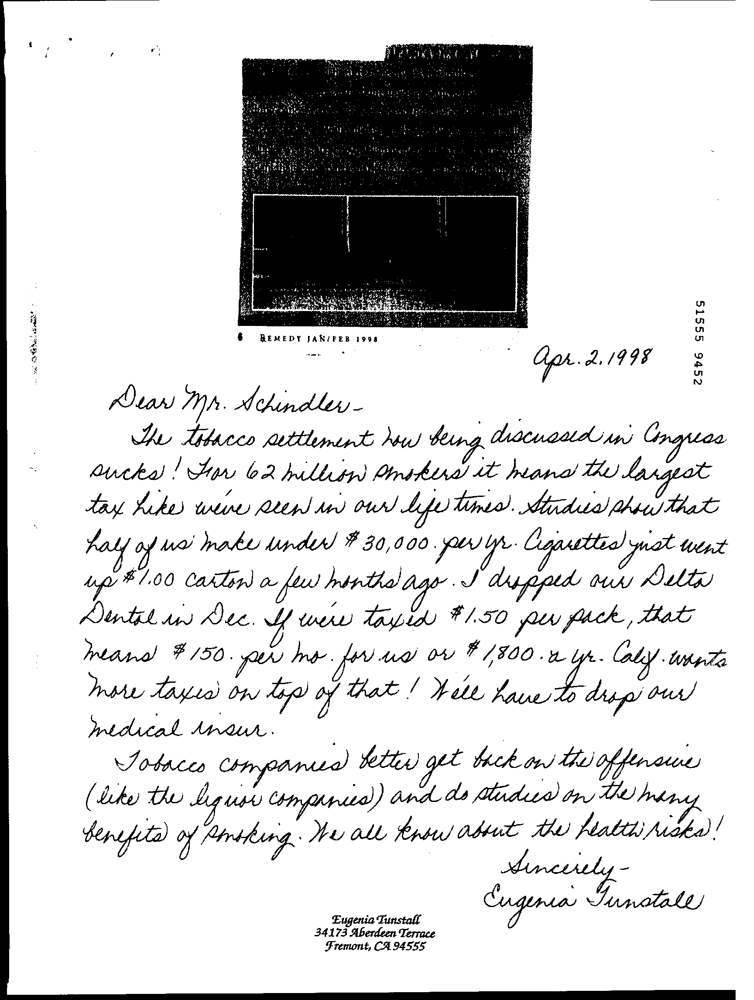 6 REMEDY JAN/FEB 1998
51555 9452
Apr. 2, 1998
Dear Mr. Schindler-
The tobacco settlement now being discussed in Congress
sucks! For 62 million smokers it means the largest
tax hike we've seen in our life times. Studies show that
half of us make under $30,000. per yr. Cigarettes just went
up $1.00 carton a few months ago. I dropped our Delta
Dental in Dec. If we're taxed $1.50 per pack, that
means $150. per mo. for us or $1,800. a yr. Calif. wants
more taxes on top of that! We'll have to drop our
medical insur.
Tobacco companies better get back on the offensive
(like the liquor companies) and do studies on the many
benefits of smoking. We all know about the health risks!
Sincerely-
Eugenia Tunstall
Eugenia Tunstall
34173 Aberdeen Terrace
Fremont, CA 94555